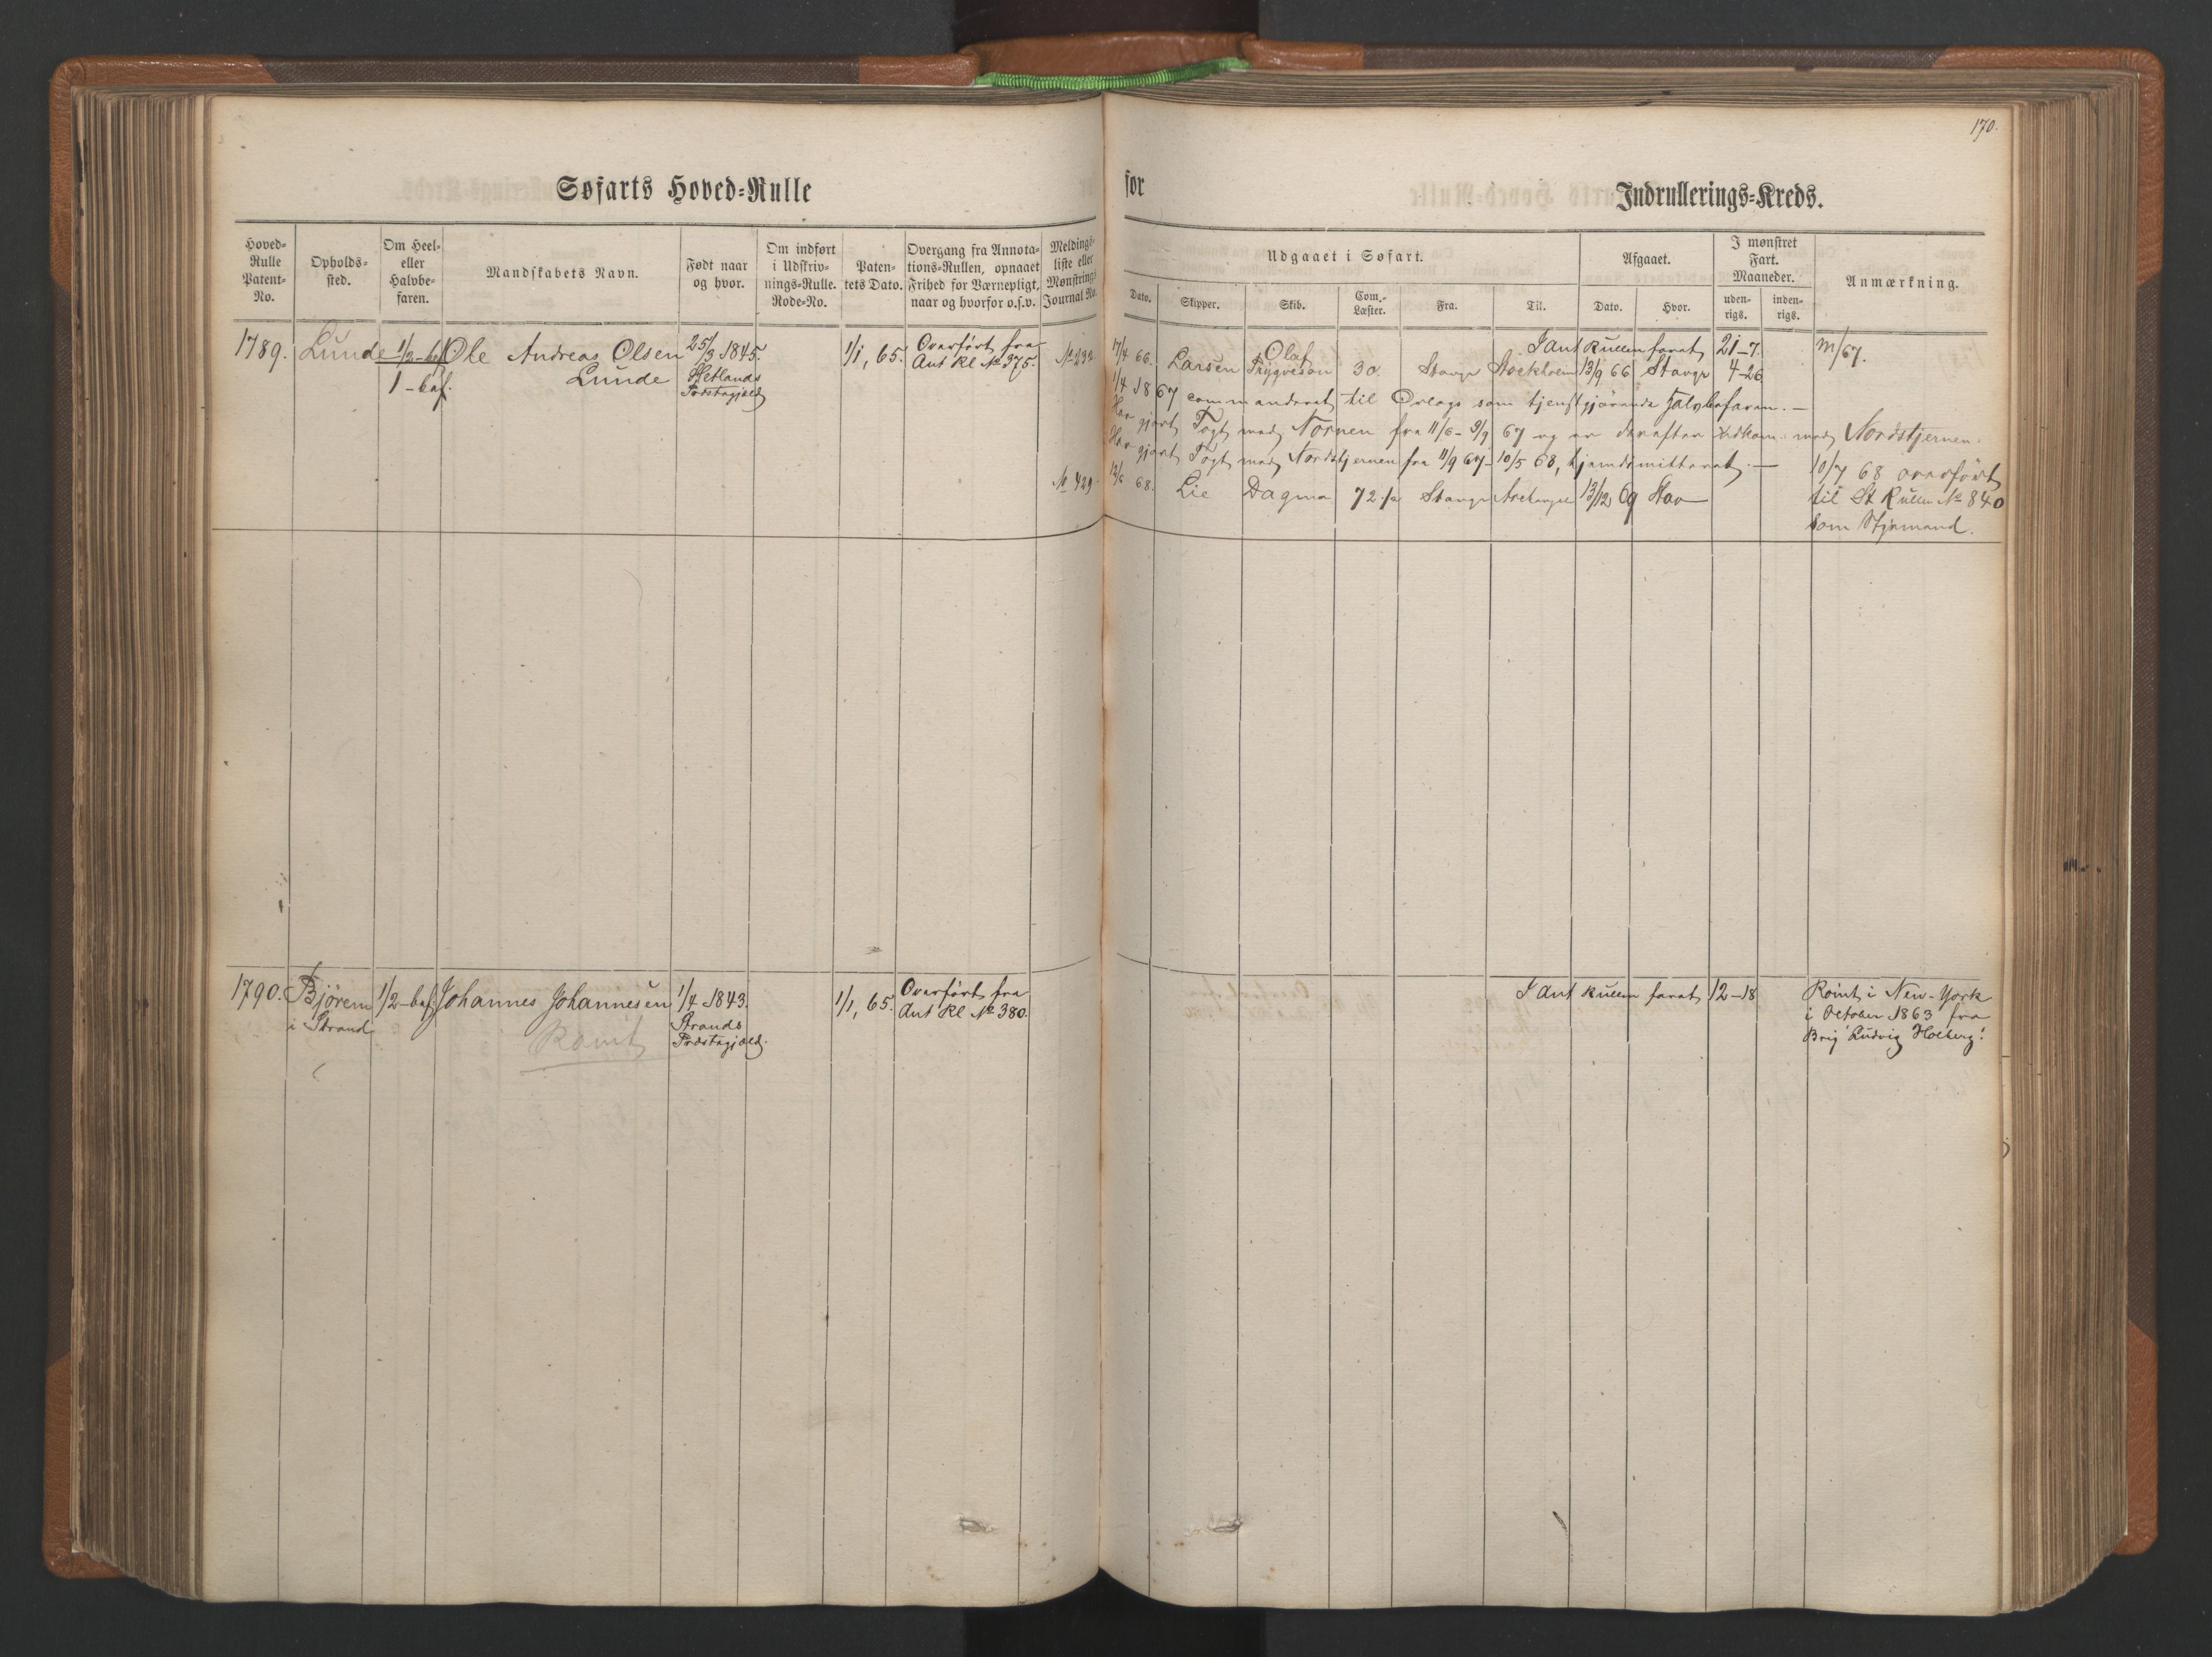 170.
Søfarts Hoved=Rulle
for
Indrullerings=Kreds.
Hoved=
Rulle
Patent=
No.
Opholds=
sted.
Om Heel=
eller
Halvbe=
faren.
Mandskabets Navn.
Født naar
og hvor.
Om indført
i Udskriv=
nings=Rulle.
Rode=No.
Paten=
tets Dato.
Overgang fra Annota=
tions=Rullen, opnaaet
Frihed for Værnepligt,
naar og hvorfor o.s.v.
Meldings=
liste eller
Mønstrings
Journal No.
Udgaaet i Søfart.
Dato.
Skipper.
Skib.
Com.-
Læster.
Fra.
Til.
Afgaaet.
Dato.
Hvor.
I mønstret
Fart.
Maaneder.
uden=
rigs.
inden=
rigs.
Anmærkning.
1789. Lunde 1/2-bef. Ole Andreas Olsen 25/3 1845. 1/1, 65. Overført fra
1-bef. Lunde Hetlands Ant Rl № 375.
Præstegjæld
I Ant Rullen faret 21-7. m/67.
№ 232 17/4 66. Larsen Olaf Trygveson 30. Stavgr Stockholm 13/9 66 Stavgr 4-26
1/4 1867 commanderet til Orlogs som tjenstgjørende Halvbefaren.-
Har gjort Togt med Nornen fra 11/6-9/9 67 og er derefter udkom. med Nordstjernen.
Har gjort Togt med Nordstjernen fra 11/9 67-10/5 68, hjemdimitteret.-
№ 429 12/6 68. Lie Dagmar 72 1/2 Stavgr Archangel 13/12 69 Hav
10/7 68 overført
til St Rullen № 840
som Styrmand.
1790. Bjørem 1/2-bef. Johannes Johannesen 1/4 1843. 1/1, 65. Overført fra
i Strand Rømt Strands Ant Rl № 380.
Præstegjæld.
I Ant Rullen faret 12-18 Rømt i New-York
i October 1863 fra
Brig "Ludvig Holberg".